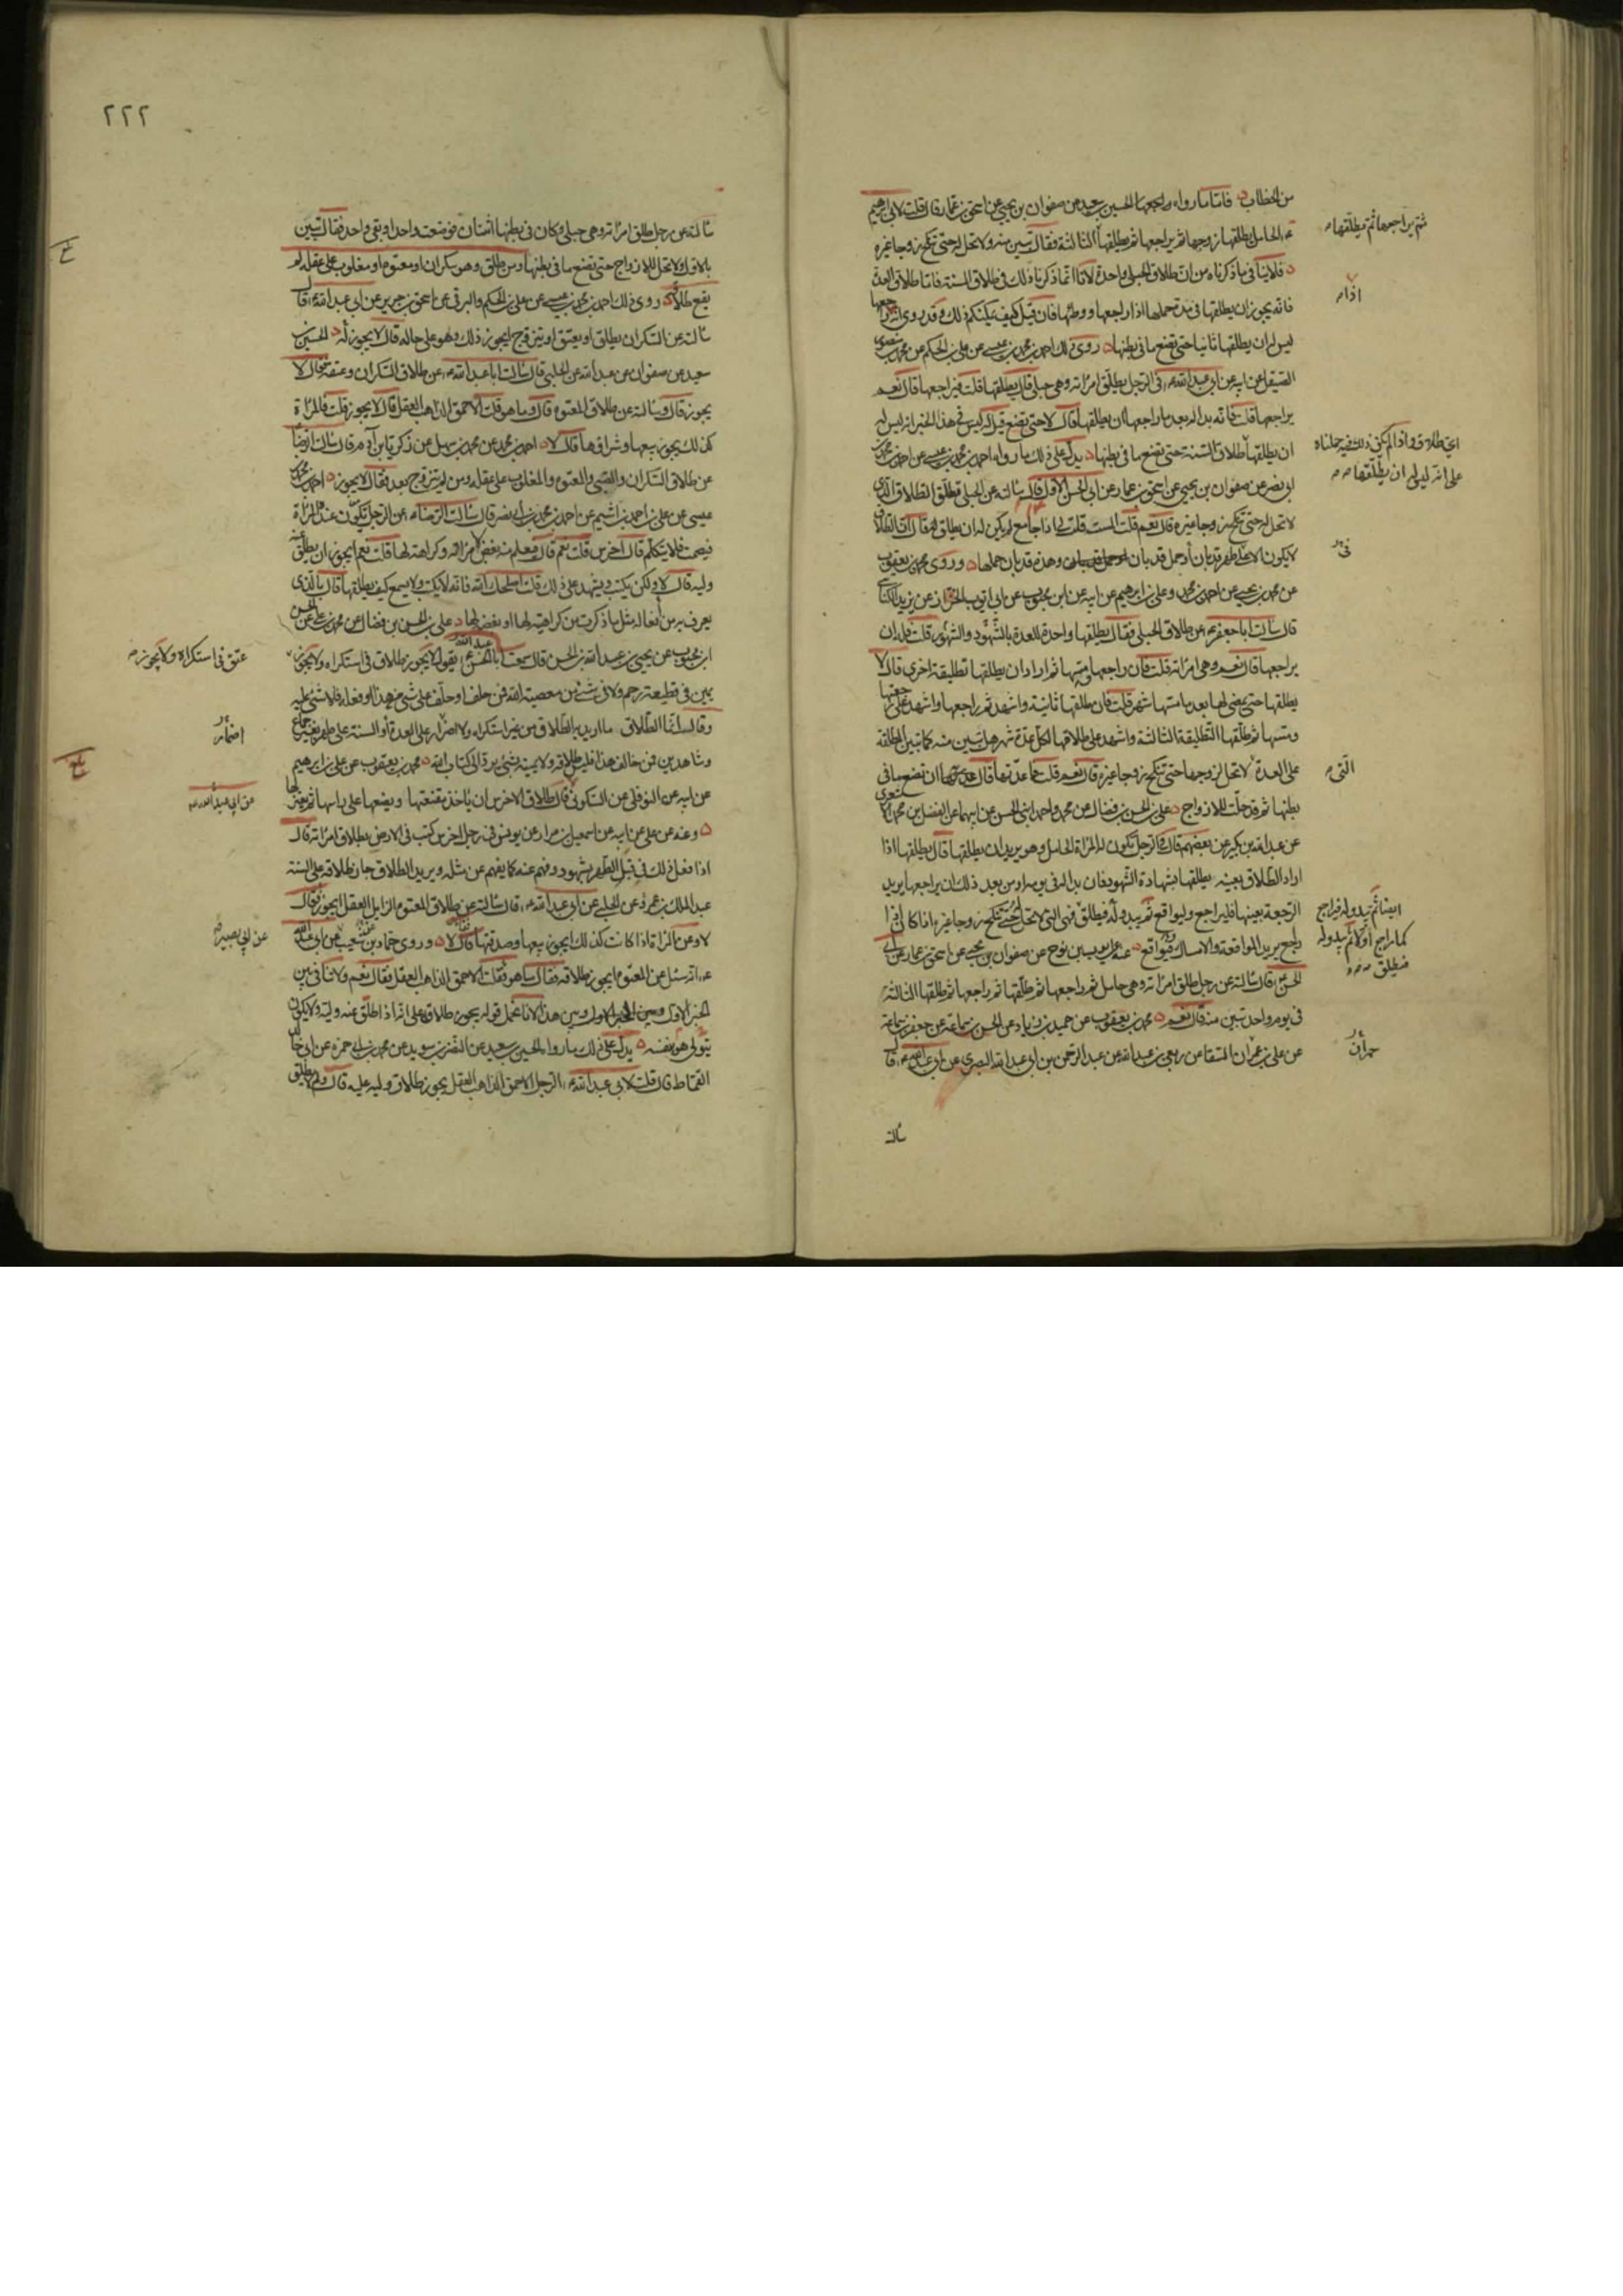 من الخطاب فاما ما رواه الحسين بن سعيد عن صفوان بن يحيى عن اسحق بن عمار قال قلت لابي ابرهيم
ع الحامل يطلقها زوجها ثم يراجعها ثم يطلقها الثالثة فقال تبين منه ولا تحل له حتى تنكح زوجا غيره
فلا ينافي ما ذكرناه من ان طلاق الحبلى واحدة لانا انما ذكرنا ذلك في طلاق السنة فاما طلاق العدة
فانه يجوز ان يطلقها في مدة حملها اذا راجعها ووطئها فان قيل كيف يمكنكم ذلك وقد روى انه
ليس له ان يطلقها ثانيا حتى تضع ما في بطنها روى ذلك احمد بن محمد بن عيسى عن علي بن الحكم عن محمد بن منصور
الصيقل عن ابيه عن ابي عبد الله ع في الرجل يطلق امراته وهي حبلى قال يطلقها قلت فيراجعها قال نعم
يراجعها قلت فانه بدا له بعد ما راجعها ان يطلقها قال لا حتى تضع قيل له ليس في هذا الخبر انه ليس له
ان يطلقها طلاق السنة حتى تضع ما في بطنها يدل على ذلك ما رواه احمد بن محمد بن عيسى عن احمد بن محمد بن
ابي نصر عن صفوان بن يحيى عن اسحق بن عمار عن ابي الحسن الاول قال سالته عن الحبلى تطلق الطلاق الذي
لا تحل له حتى تنكح زوجا غيره قال نعم قلت الست قلت لي اذا جامع لم يكن له ان يطلق قال ان الطلاق
لا يكون الا على طهر قد بان او حمل قد بان وهذه قد بان حملها وروى محمد بن يعقوب
عن محمد بن يحيى عن احمد بن محمد وعلي بن ابرهيم عن ابيه عن ابن محبوب عن ابي ايوب الخزاز عن يزيد الكناسي
قال سالت ابا جعفر ع عن طلاق الحبلى فقال يطلقها واحدة للعدة بالشهود والشهور قلت فله ان
يراجعها قال نعم وهي امراته قلت فان راجعها ومسها ثم اراد ان يطلقها تطليقة اخرى قال لا
يطلقها حتى يمضي لها بعد ما مسها شهر قلت فان طلقها ثانية واشهد ثم راجعها واشهد على رجعتها
ومسها ثم طلقها التطليقة الثالثة واشهد على طلاقها لكل عدة شهر هل تبين منه كما تبين المطلقة
على العدة لا تحل لزوجها حتى تنكح زوجا غيره قال نعم قلت فما عدتها قال عدتها ان تضع ما في
بطنها ثم قد حلت للازواج علي بن الحسن بن فضال عن محمد واحمد ابني الحسن عن ابيهما عن الفضل بن محمد
عن عبد الله بن بكير عن بعضهم قال في الرجل تكون له المراة الحامل وهو يريد ان يطلقها قال يطلقها اذا
اراد الطلاق بعينه يطلقها بشهادة الشهود فان بدا له في يومه او من بعد ذلك ان يراجعها يريد
الرجعة بعينها فليراجع وليواقع ثم يبدو له فيطلق فهي التي لا تحل له حتى تنكح زوجا غيره اذا كان اذا
راجع يريد المواقعة والامساك ويواقع عنه عن ايوب بن نوح عن صفوان بن يحيى عن اسحق بن عمار عن ابي
الحسن ع قال سالته عن رجل طلق امراته وهي حامل ثم راجعها ثم طلقها ثم راجعها ثم طلقها الثالثة
في يوم واحد تبين منه قال نعم محمد بن يعقوب عن حميد بن زياد عن الحسن بن سماعة عن جعفر بن سماعة
عن علي بن عمران الشفا عن ربعي بن عبد الله عن عبد الرحمن بن ابي عبد الله البصري عن ابي عبد الله ع قال
سالته
ثم يراجعها ثم يطلقها
اذا
اي طلاق واذا لم يكن ذلك فيه حملناه
على انه ليس له ان يطلقها
في
التي
ايضا ثم يبدو له فيراجع
كما راجع اولا ثم يبدو له
فيطلق
حمران
٢٢٢
سالته عن رجل طلق امراته وهي حبلى وكان في بطنها اثنان فوضعت واحدا وبقي واحد فقال تبين
بالاول ولا تحل للازواج حتى تضع ما في بطنها ومن طلق وهو سكران او معتوه او مغلوب على عقله لم
يقع طلاقه روى ذلك احمد بن محمد بن عيسى عن علي بن الحكم والبرقي عن اسحق بن جرير عن ابي عبد الله ع قال
سالته عن السكران يطلق او يعتق او يتزوج ايجوز ذلك وهو على حاله قال لا يجوز له الحسين بن
سعيد عن صفوان عن عبد الله عن الحلبي قال سالت ابا عبد الله ع عن طلاق السكران وعتقه فقال لا
يجوز قال وسالته عن طلاق المعتوه قال وما هو قلت الاحمق الذاهب العقل قال لا يجوز قلت فالمراة
كذلك يجوز بيعها وشراؤها قال لا احمد بن محمد عن محمد بن سهل عن زكريا بن آدم قال سالت الرضا
عن طلاق السكران والصبي والمعتوه والمغلوب على عقله ومن لم يتزوج بعد فقال لا يجوز احمد بن محمد بن
عيسى عن علي بن احمد بن اشيم عن احمد بن محمد بن ابي نصر قال سالت الرضا ع عن الرجل تكون عنده المراة
فيصمت فلا يتكلم قال اخرس قلت نعم قال فيعلم منه بغض لامراته وكراهته لها قلت نعم ايجوز ان يطلق عنه
وليه قال لا ولكن يكتب ويشهد على ذلك قلت اصلحك الله فانه لا يكتب ولا يسمع كيف يطلقها قال بالذي
يعرف به من افعاله مثل ما ذكرت من كراهيته لها او بغضه لها علي بن الحسن بن فضال عن محمد بن علي عن الحسن
ابن محبوب عن يحيى بن عبد الله بن الحسن قال سمعت عبد الله ع يقول لا يجوز طلاق في استكراه ولا يجوز
يمين في قطيعة رحم ولا في شيء من معصية الله فمن حلف او حلف على شيء من هذا او فعله فلا شيء عليه
وقال انما الطلاق ما اريد به الطلاق من غير استكراه ولا اضرار على العدة او السنة على طهر بغير جماع
وشاهدين فمن خالف هذا فليس طلاقه ولا يمينه بشيء يرد الى كتاب الله محمد بن يعقوب عن علي بن ابرهيم
عن ابيه عن النوفلي عن السكوني قال طلاق الاخرس ان ياخذ مقنعتها ويضعها على راسها ثم يعتزلها
وعنه عن علي عن ابيه عن اسمعيل بن مرار عن يونس في رجل اخرس كتب في الارض بطلاق امراته قال
اذا فعل ذلك في قبل الطهر بشهود وفهم عنه كما يفهم عن مثله ويريد الطلاق جاز طلاقه على السنة
عبد الملك بن عمرو عن الحلبي عن ابي عبد الله ع قال سالته عن طلاق المعتوه الزايل العقل ايجوز فقال
لا وعن المراة اذا كانت كذلك ايجوز بيعها وصدقتها فقال لا وروى حماد بن شعيب عن ابي عبد الله
ع انه سئل عن المعتوه ايجوز طلاقه فقال ما هو فقلت الاحمق الذاهب العقل فقال نعم ولا تنافي بين
الخبر الاول وبين هذا لانا نحمل قوله يجوز طلاقه على انه اذا طلق عنه وليه ولا يكون
يتولى هو بنفسه يدل على ذلك ما رواه الحسين بن سعيد عن النضر بن سويد عن محمد بن ابي حمزة عن ابي خالد
القماط قال قلت لابي عبد الله ع الرجل الاحمق الذاهب العقل يجوز طلاق وليه عليه قال ولم لا يطلق
عتق في استكراه ولا يجوز
اضرار
عن ابي عبد الله ع
عن ابي بصير